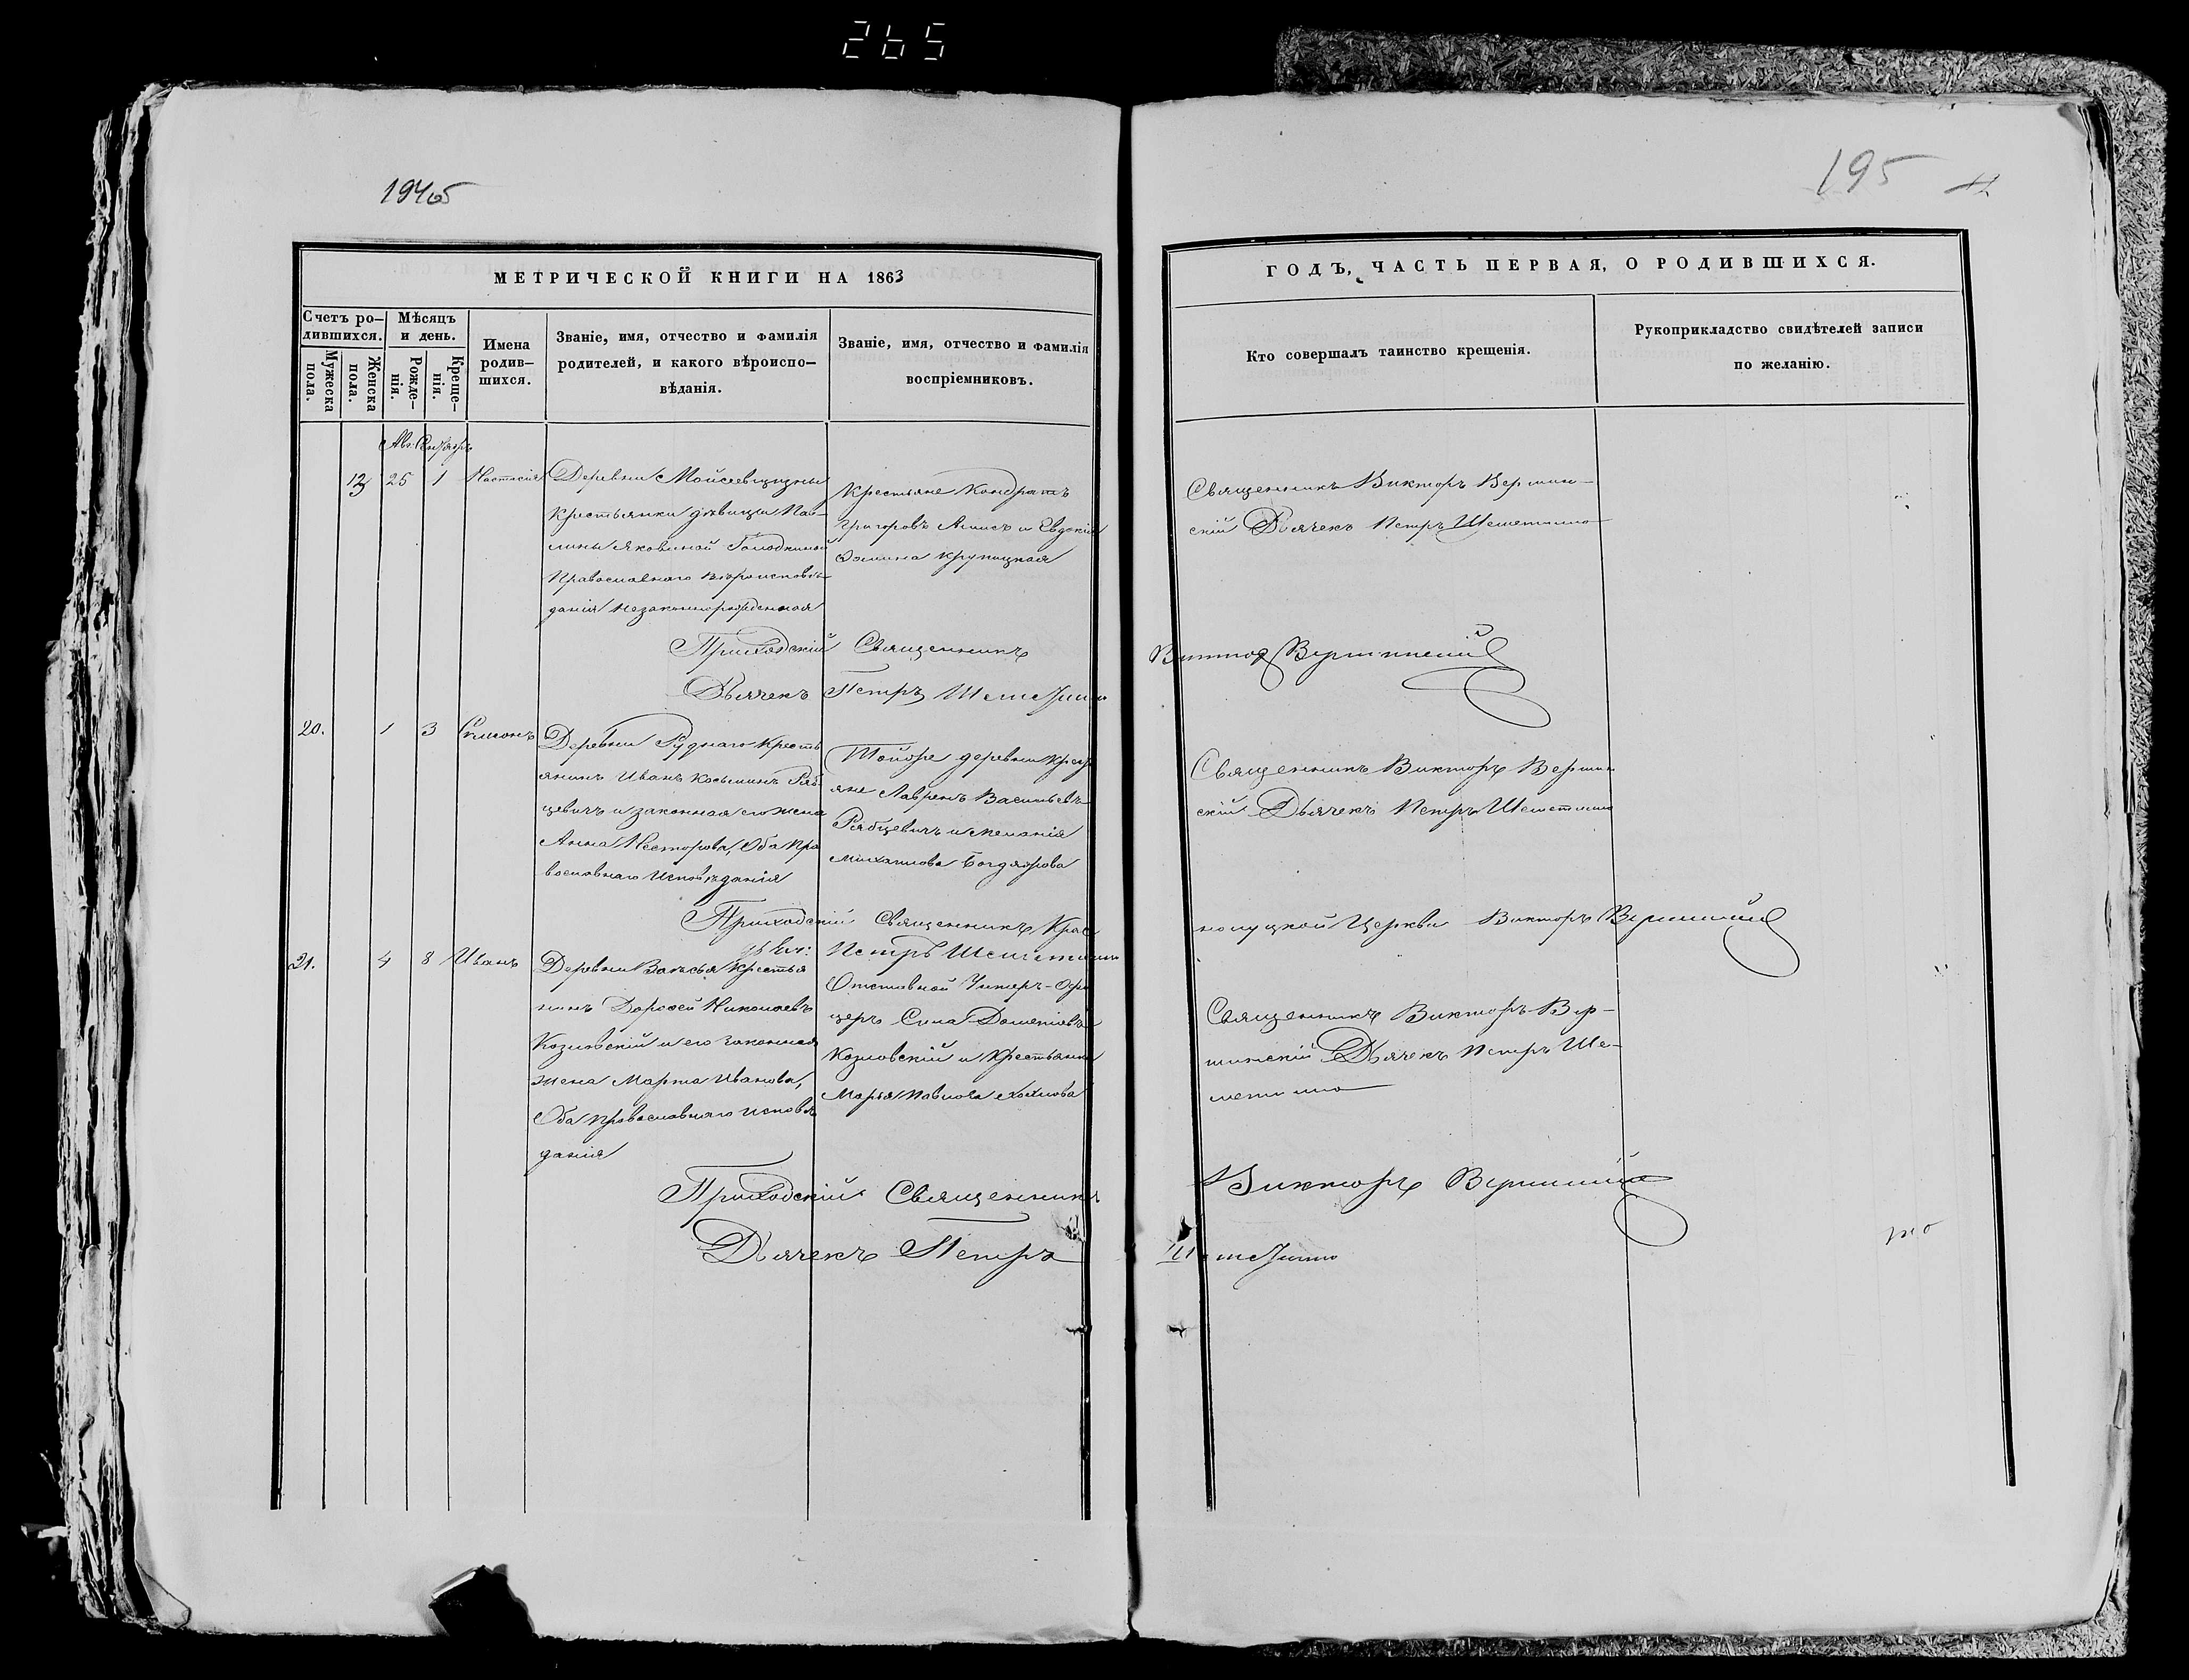 265
195
МЕТРИЧЕСКОЙ КНИГИ НА 1863
ГОДЪ, ЧАСТЬ ПЕРВАЯ, О РОДИВШИХСЯ.
Счетъ ро–
дившихся.
Мужеска
пола.
Женска
пола.
Мѣсяцъ
и день.
Рожде–
нія.
Креще–
нія.
Имена
родив–
шихся.
Званіе, имя, отчество и фамилія
родителей, и какого вѣроиспо–
вѣданія.
Званіе, имя, отчество и фамилія
воспріемниковъ.
Кто совершалъ таинство крещенія.
Рукоприкладство свидѣтелей записи
по желанію.
25 1 Настасія
Деревни Мойсеевщизны
крестьянки дѣвицы Пав–
лины Яковиной
Православнаго вѣроисповѣ–
данія незаконнорожденная
Крестьяне Кондратъ
Григоровъ и Евдокія
Ѳомина Крупицкая
Священникъ Викторъ Вершин–
скій Дьячекъ Петръ Шеметилло
Приходскій Священникъ
Викторъ Вершинскій
Дьячекъ Петръ Шеметилло
20. 1 3 Симонъ
Деревни Руднаго крестъ
янинъ Иванъ Косьминъ Ряб
цевичъ и законная его жена
Анна Несторова, Оба пра
вославнаго исповѣданія
Тойоже деревни крест
яне Василъевъ
Рябцевичъ и Меланія
Михаилова
Священникъ Викторъ Вершин
скій Дьячекъ Петръ Шеметилло
Приходскій Священникъ Крас
нолуцкой Церкви Викторъ Вершинскій
Петръ Шеметилло
21. 4 8 Иванъ
Деревни крестья
нинъ Дорофей Николаевъ
Козловскій и его законная
жена Марта Иванова,
Оба православнаго исповѣ
данія
Отставной Унтеръ-Офи
церъ Сила
Козловскій и крестьянка
Марья Павлова
Священникъ Викторъ Вер–
шинскій Дьячекъ Петръ Ше–
метилло
Приходскій Священникъ
Викторъ Вершинскій
Дьячекъ Петръ
Шеметилло